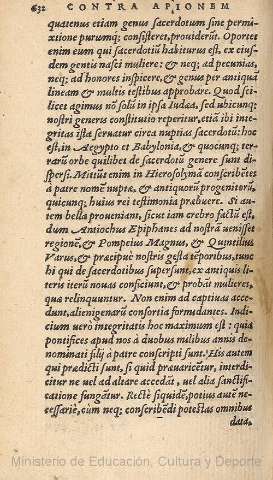 632 CONTRA APIONEM
quatenus etiam genus sacerdotum sine permi-
xtione purumq; consisteret, prouiderūt. Oportet
enim eum qui sacerdotiū habiturus est, ex eius-
dem gentis nasci muliere: & neq; ad pecunias,
neq; ad honores inspicere, & genus per antiquā
lineam & multis testibus approbare. Quod sci-
licet agimus nō solū in ipsa Iudæa, sed ubicunq;
nostri generis constitutio reperitur, etiā ibi inte-
gritas ista seruatur circa nuptias sacerdotū: hoc
est, in Aegypto et Babylonia, & quocunq; ter-
rarū orbe quilibet de sacerdotū genere sunt di-
spersi. Mittūt enim in Hierosolyma conscribētes
à patre nomē nuptæ, & antiquorū progenitorū,
quicunq; huius rei testimonia præbuere. Si au-
tem bella proueniant, sicut iam crebro factū est,
dum Antiochus Epiphanes ad nostrā uenisset
regionē, & Pompeius Magnus, & Quintilius
Varus, & præcipuè nostris gesta tēporibus, tunc
hi qui de sacerdotibus supersunt, ex antiquis li-
teris iterū nouas conficiunt, & probāt mulieres,
quæ relinquuntur. Non enim ad captiuas acce-
dunt, alienigenarū consortia formidantes. Indi-
cium uerò integritatis hoc maximum est: quia
pontifices apud nos à duobus milibus annis de-
nominati filij à patre conscripti sunt. His autem
qui prædicti sunt, si quid præuaricētur, interdi-
citur ne uel ad altare accedāt, uel alia sanctifi-
catione fungātur. Rectè siquidē, potius autē ne-
cessariè, cùm neq; conscribēdi potestas omnibus
data,
Ministerio de Educación, Cultura y Deporte